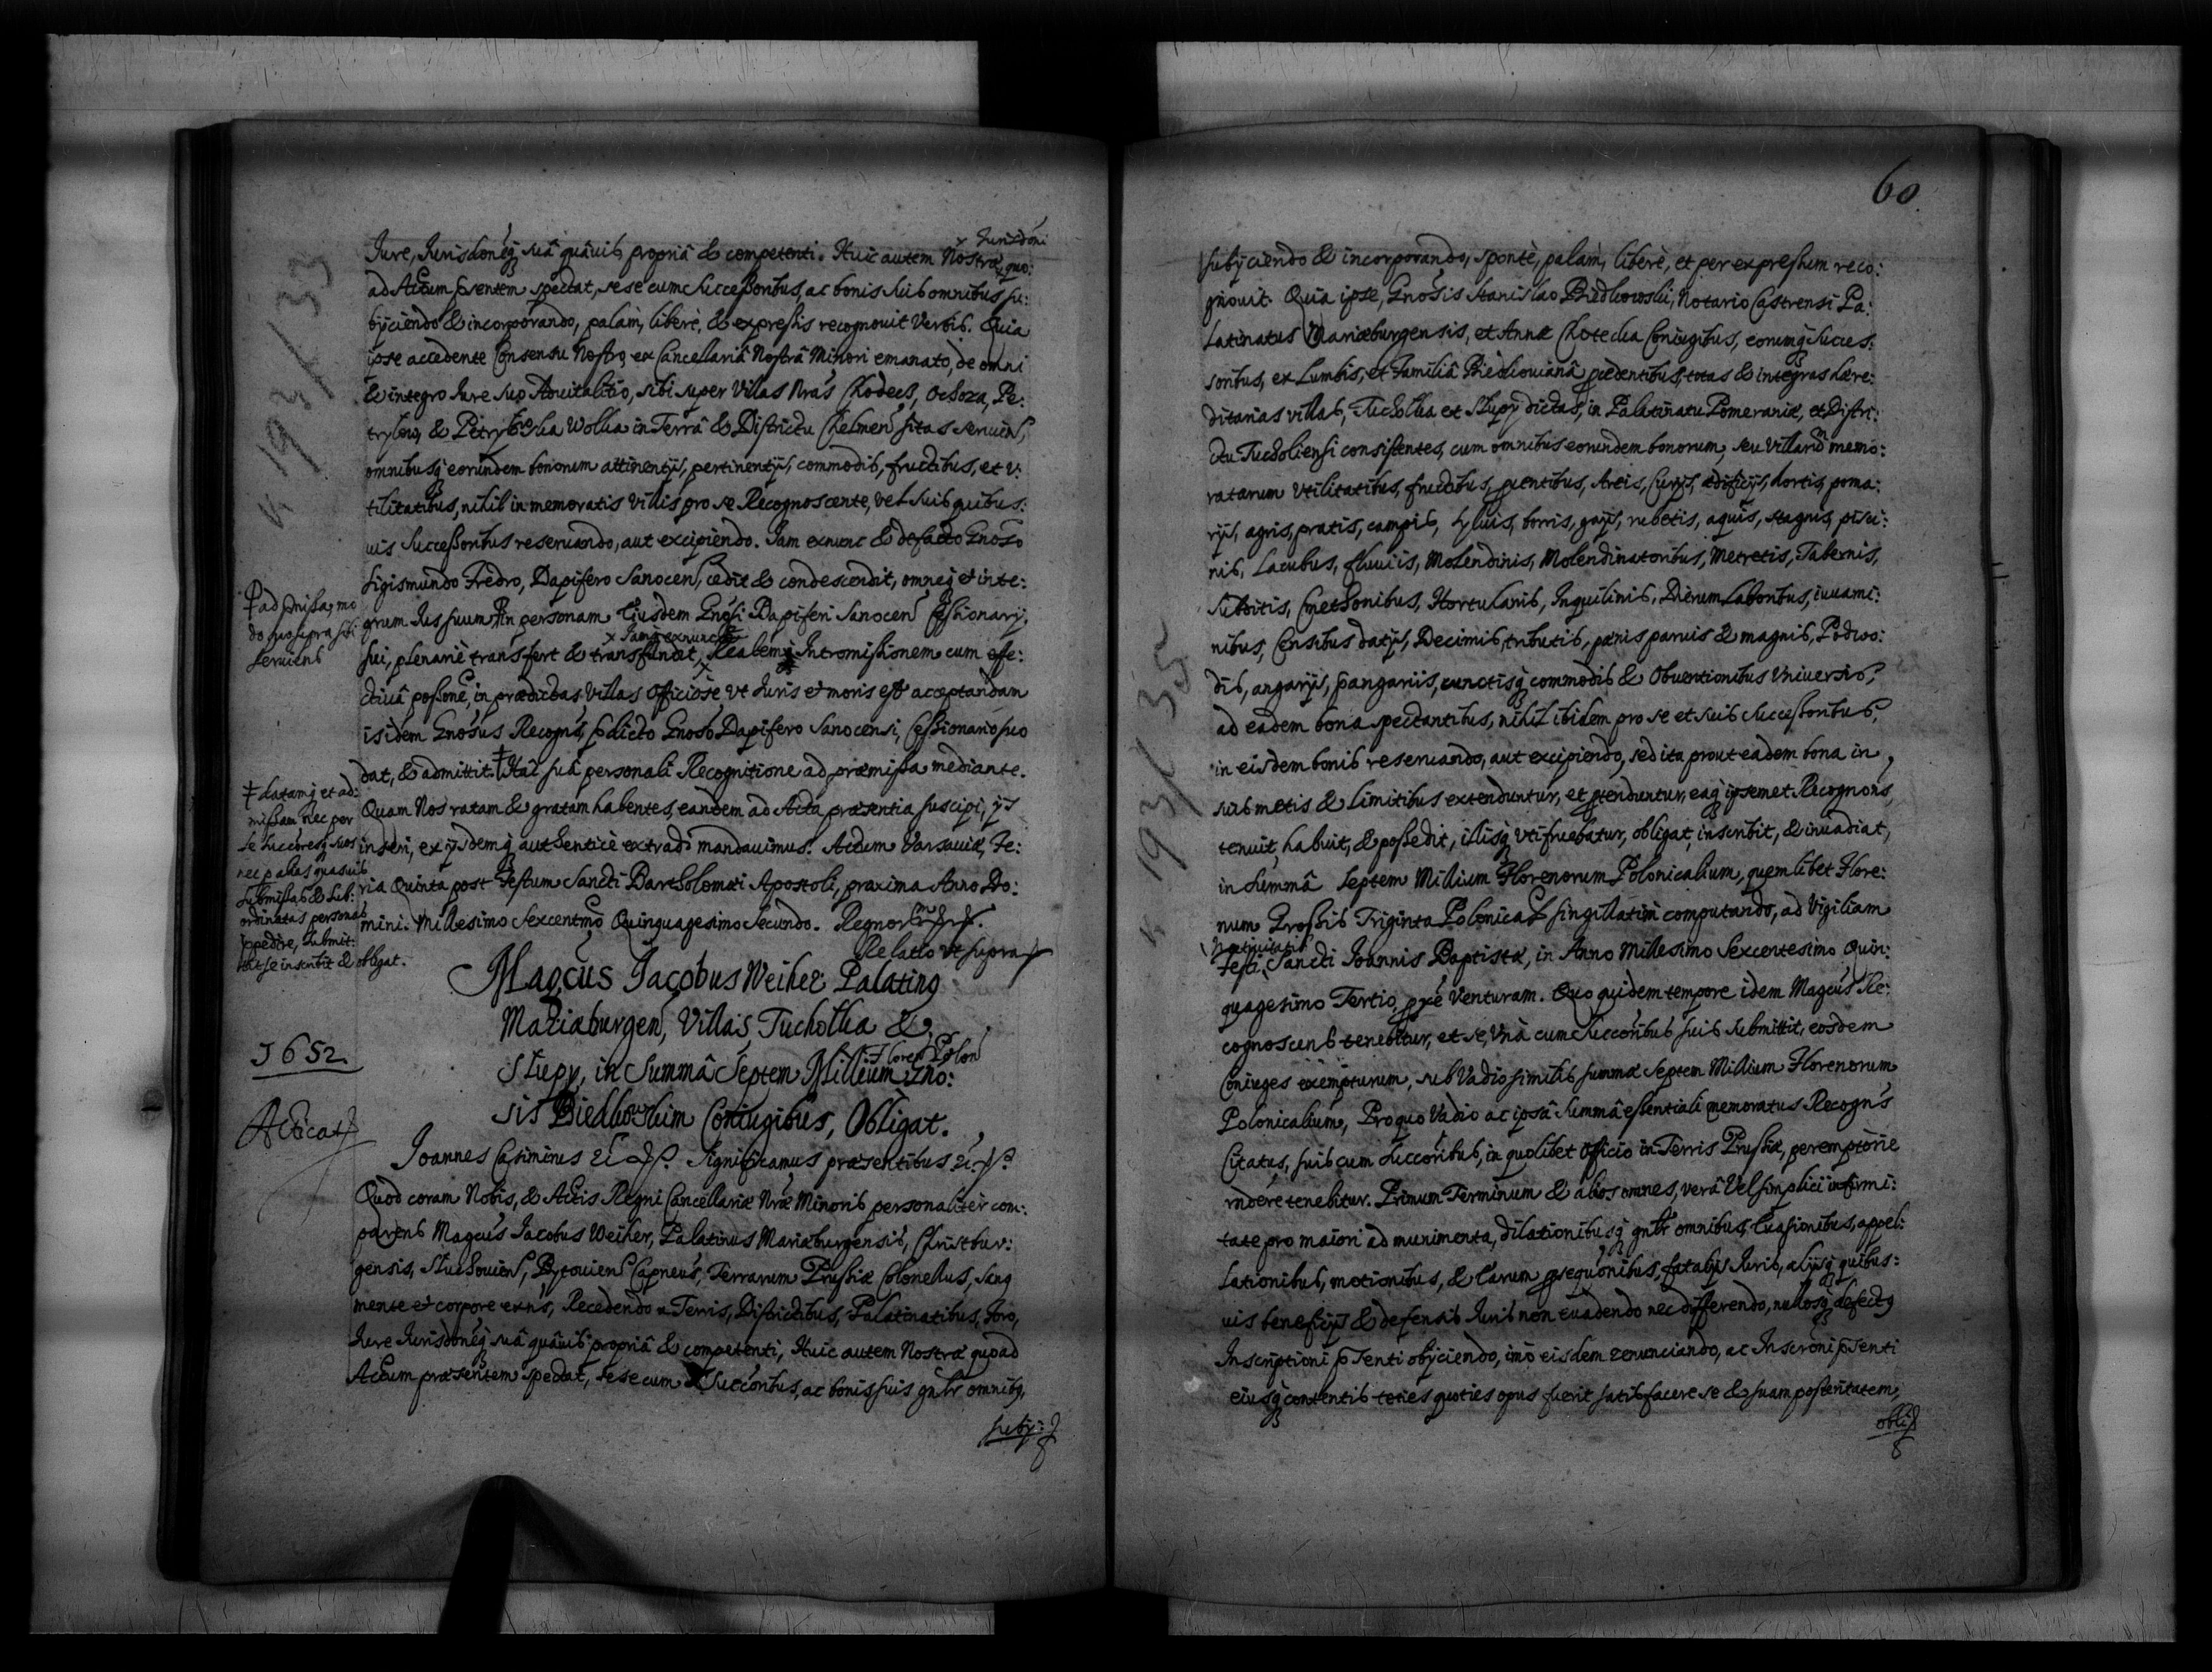 Iure, Iurisdoneq̃ suâ quâuis propriâ & competenti. Huic autem Nostræ quo:
x Iurisdoni
ad Actum pñsentem spectat, sese cum Successoribus, ac bonis suis omnibus su:
bÿciendo & incorporando, palàm, liberè, & expressis recognouit Verbis. Quia
ipse accedente Consensu Nostro, ex Cancellariâ Nostrâ Minori emanato, de omni
& integro Iure suo Aduitalitio, sibi super Villas Nras Chodecz, Ochoza, Pe:
tryłow, & Petryłowska Wolka in Terrâ & Districtu Chelmen̄ sitas seruien̄,
omnibusq̃ eorundem bonorum attinentÿs, pertinentÿs, commodis, fructibus, et v:
tilitatibus, nihil in memoratis Villis pro se Recognoscente, vel suis quibus:
uis Successoribus reseruando, aut excipiendo. Iam exnunc & defacto Gnoso
Sigismundo Fredro, Dapifero Sanocen̄, cedit & condescendit, omneq̃ et inte:
grum Ius suum in personam Eiusdem Gnosi Dapiferi Sanocen̄ Cessionarÿ
sui, plenariè transfert & transfundit, Realemq̃ Intromissionem cum effe:
x Iamq̃ exnunc
ctiuâ possone, in prædictas Villas officiosè, vt Iuris et moris est acceptandam
isidem Gnosus Recogns, pdicto Gnoso Dapifero Sanocensi, Cessionario suo
dat, & admittit. Hac suâ personali Recognitione ad præmissa mediante.
Quam Nos ratam & gratam habentes, eandem ad Acta præsentia suscipi, ÿs
inseri, ex ÿsdemq̃ authenticè extradi mandauimus. Actum Varsauiæ, Fe:
ria Quinta post Festum Sancti Bartholomæi Apostoli, proxima Anno Do:
mini Millesimo Sexcentmo Quinquagesimo Secundo. Regnor
Relatio vt supra
ad pmissa, mo
do quo supra sibi
seruiens
datamq̃ et ad:
missam nec per
se succoresq̃ suos
nec p alias quasuis
submissas & sub:
ordinatas personas
jppedire, submit:
tit se inscribit & obligat.
Magcus Iacobus Weiher Palating
Mariæburgen̄, Villas Tucholka &
Słupy, in Summâ Septem Millium Gno:
Floren̄ Polon̄
sis Biedkowskim Coniugibus, Obligat.
1652.
Acticat
Ioannes Casimirus &c. Significamus præsentibus &c.
Quod coram Nobis, & Actis Regni Cancellariæ Nræ Minoris personaliter com:
parens Magcus Iacobus Weiher, Palatinus Mariæburgensis, Christbur:
gensis, Słuchouien̄, Bytouien̄ Capneus, Terrarum Prussiæ Colonellus, Sang
mente et corpore exns, Recedendo a Terris, Districtibus, Palatinatibus, foro,
Iure Iurisdoneq̃ suâ quâuis propriâ & competenti, Huic autem Nostræ quoad
Actum præsentem spectat, sese cum Succoribus, ac bonis suis gnlr omnibg,
subÿ:
60.
subÿciendo & incorporando, spontè, palàm, liberè, et per expressum reco:
gnouit. Quia ipse, Gnosis Stanislao Biedkowski, Notario Castrensi Pa:
latinatus Mariæburgensis, et Annæ Chotecka Coniugibus, eorumq̃ Succes:
soribus, ex Lumbis, et Familiâ Biedkouianâ pcedentibus, totas & integras hære:
ditarias villas, Tucholka et Słupy dictas, in Palatinatu Pomeraniæ, et Distri:
ctu Tucholiensi consistentes, cum omnibus eorundem bonorum, seu Villarũ memo:
ratarum vtilitatibus, fructibus, puentibus, Areis, Curÿs, ædificÿs, hortis, poma:
rÿs, agris, pratis, campis, syluis, borris, gaÿs, rubetis, aquis, stagnis, pisci:
nis, lacubus, fluuiis, Molendinis, Molendinatoribus, Metretis, Tabernis,
Subditis, Cmethonibus, Hortulanis, Inquilinis, Dierum Laboribus, iuuami:
nibus, Censibus datÿs, Decimis, tributis, pænis paruis & magnis, Podwo:
dis, angarÿs, pangariis, cunctisq̃ commodis & Obuentionibus Vniuersis,
ad eadem bona spectantibus, nihil ibidem pro se et suis Successoribus,
in eisdem bonis reseruando, aut excipiendo, sed ita prout eadem bona in
suis metis & limitibus extenduntur, et ptenduntur, eaq̃ ipsemet Recognons,
tenuit, habuit, & possedit, illisq̃ vtifruebatur, obligat, inscribit, & inuadiat,
in Summâ Septem Millium Florenorum Polonicalium, quemlibet Flore:
num Grossis Triginta Polonical singillatim computando, ad Vigiliam
Natiuitatis
Festi Sancti Ioannis Baptistæ, in Anno Millesimo Sexcentesimo Quin:
quagesimo Tertio, pxè Venturam. Quo quidem tempore idem Magcus Re:
cognoscens tenebitur, et se, vnà cum Succoribus suis submittit, eosdem
Coniuges exempturum, sub Vadio similis summæ Septem Millium Florenorum
Polonicalium, Pro quo Vadio ac ipsâ Summâ essentiali memoratus Recogns
Citatus, suis cum Succoribus, in quolibet officio in Terris Prussiæ, peremptoriè
rndere tenebitur. Primum Terminum & alios omnes, verâ Vel simplici infirmi:
tate pro maiori ad munimenta, dilationibusq̃ gnlr omnibus, Euasionibus, appel:
lationibus, motionibus, & Earum psequonibus, fatalÿs Iuris, alÿsq̃ quibus:
uis beneficÿs & defensis Iuris non euadendo nec differendo, nullosq̃ defectg
Inscriptioni pSenti obÿciendo, imò eisdem renunciando, ac Inscroni pSenti
eiusq̃ contentis toties quoties opus fuerit satisfacere se & suam posteritatem,
obli